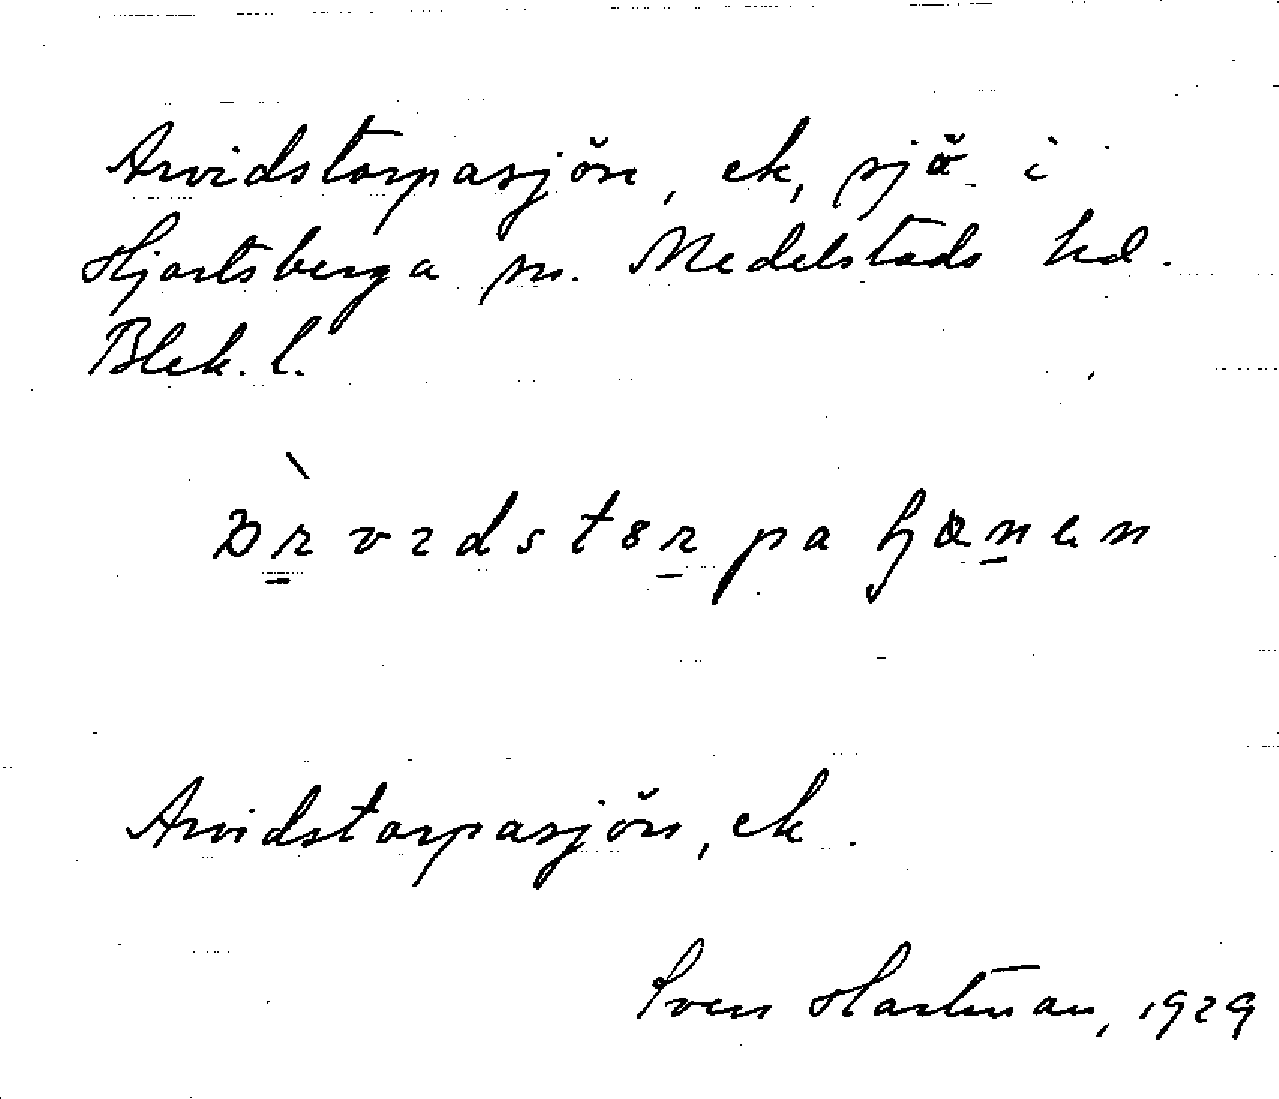 Arvidstorpasjön, ek, sjö i
Hjortsberga sn. Medelstads hd.
Blek. l.
Arvidstorpasjön, ek.
Sven Hartman, 1929